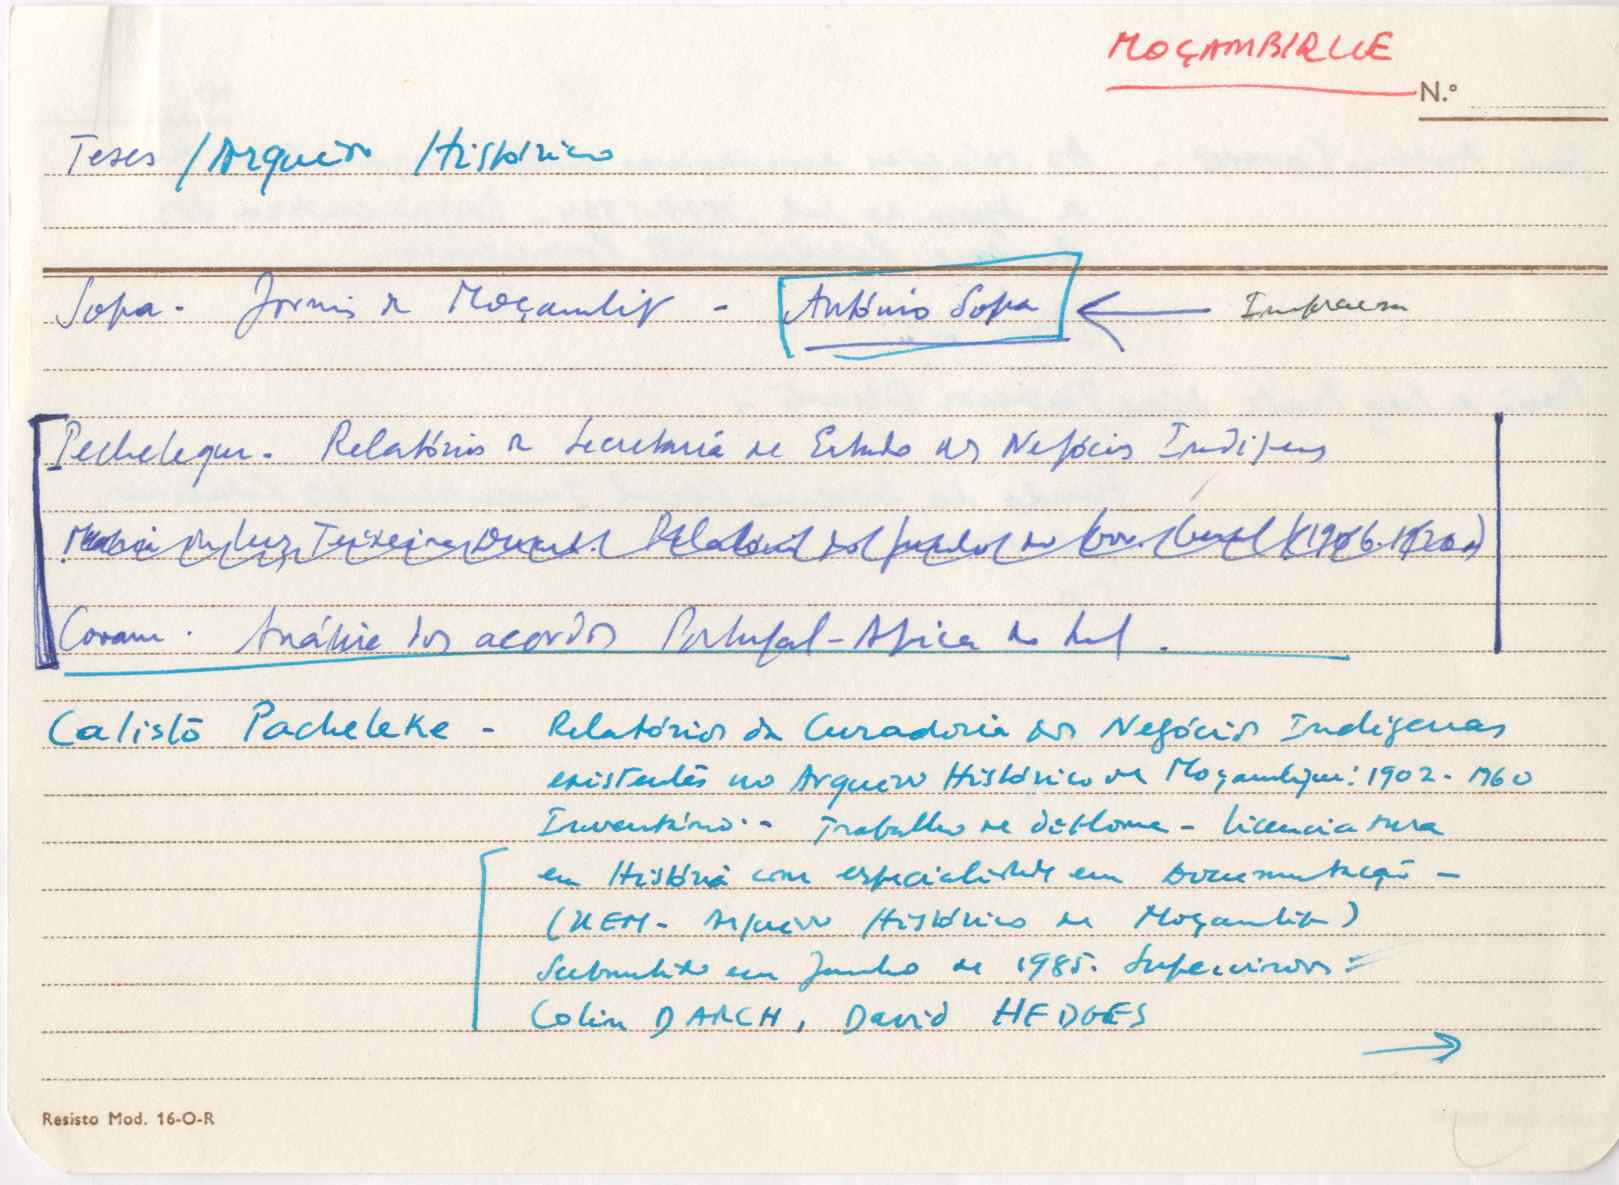 MOÇAMBIQUE
N.º
Teses / Arquivo Histórico
Sopa - Jornais de Moçambique - António Sopa ← Imprensa
Pecheleque - Relatórios da Secretaria de Estado dos Negócios Indígenas
Maria da Luz Teixeira Duarte. Relatórios dos do Gov. Geral (1906-1920)
Covane - Análise dos acordos Portugal-Africa do Sul.
Calisto Pacheleke - Relatórios da Curadoria dos Negócios Indígenas
existentes no Arquivo Histórico de Moçambique: 1902-1960
Inventário - Trabalho de diploma - licenciatura
em História com especialidade em Documentação -
(UEM - Arquivo Histórico de Moçambique)
Submetido em Junho de 1985. Supervisores =
Colin DARCH, David HEDGES
→
Resisto Mod. 16-O-R